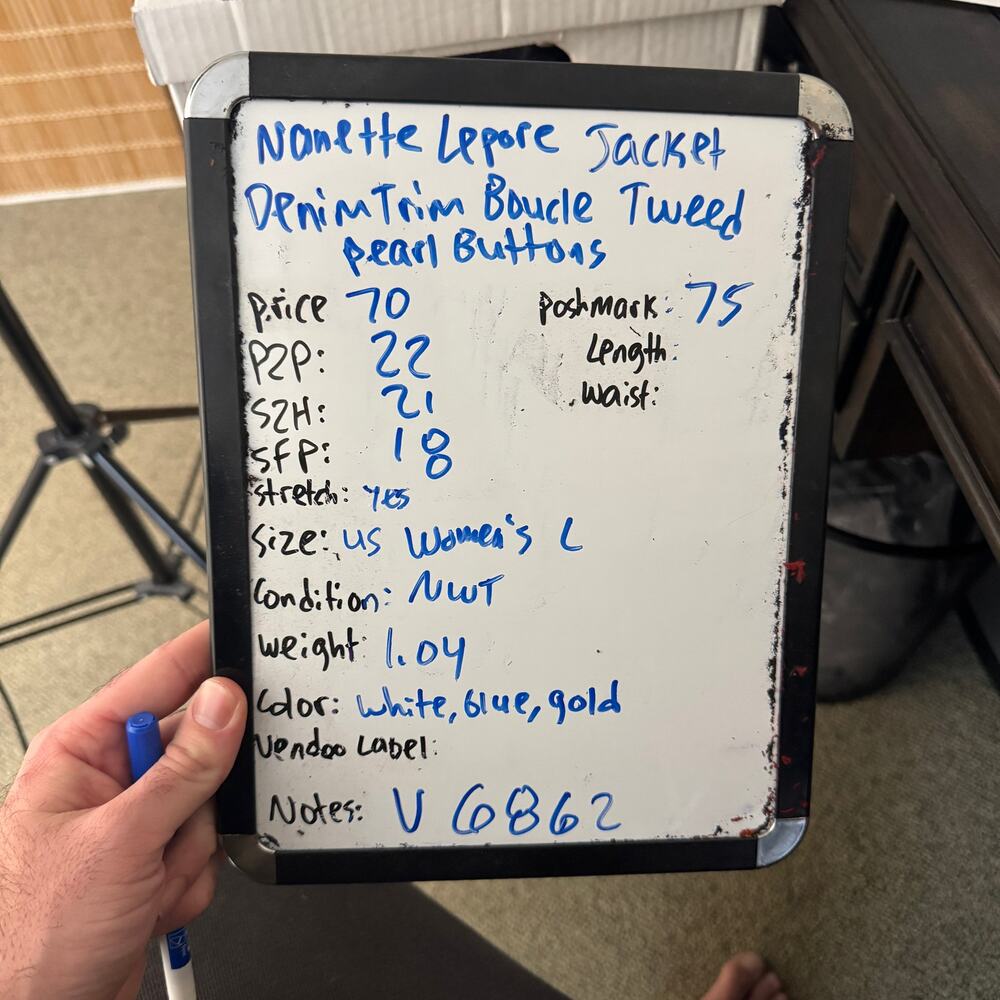 Nanette Lepore Jacket
Denim Trim Boucle Tweed
pearl Buttons
price 70
poshmark: 75
P2P: 22
Length:
S2H: 21
waist:
SFP: 18
stretch: yes
Size: US Women's L
Condition: NWT
weight: 1.04
Color: white, blue, gold
Vendoo Label:
Notes: V 6862